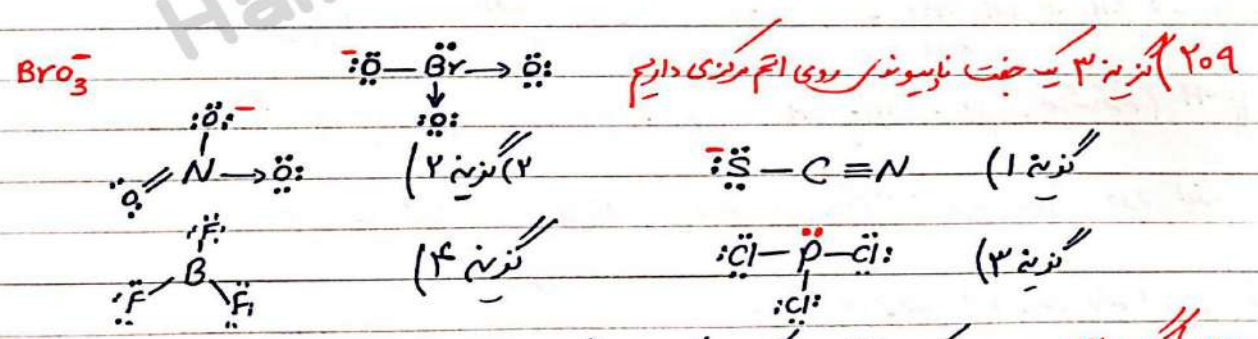 ۲۰۹) گزینه ۳ یک جفت ناپیوندی روی اتم مرکزی داریم
BrO₃⁻ :Ö⁻—Br→Ö:
:O:
گزینه ۱) :S̈⁻—C≡N
گزینه ۲) O=N→Ö: :Ö:⁻
گزینه ۳) :C̈l—P̈—C̈l: :Cl:
گزینه ۴) F B F F